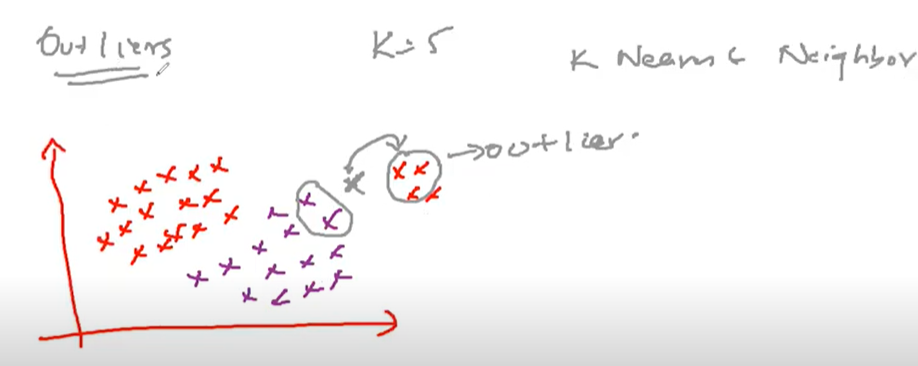 Outliers
K=5
K Nearest Neighbor
outlier.